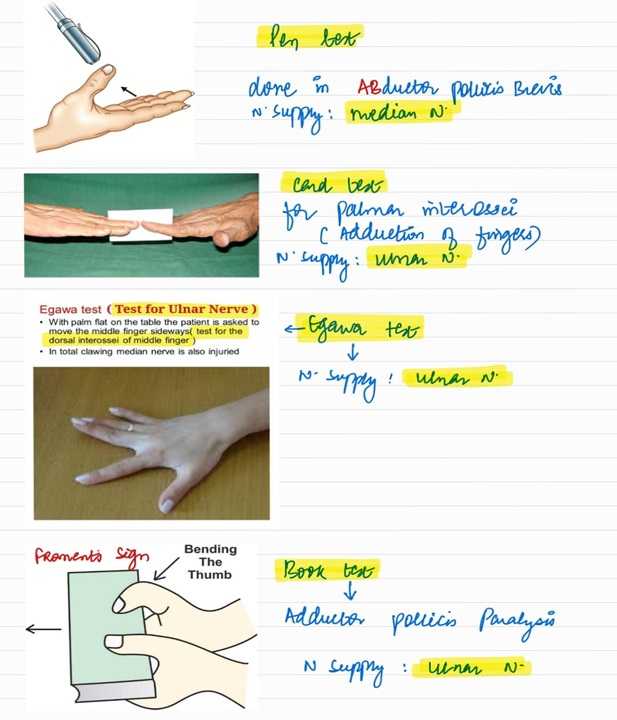 Pen test
done in ABductor pollicis Brevis
N. supply: median N.
Card test
for palmar interossei
( Adduction of fingers)
N. supply: ulnar N.
Egawa test ( Test for Ulnar Nerve )
• With palm flat on the table the patient is asked to
move the middle finger sideways( test for the
dorsal interossei of middle finger )
• In total clawing median nerve is also injuried
← Egawa test
↓
N. supply : ulnar N.
Froment's sign
Bending
The
Thumb
Book test
↓
Adductor pollicis Paralysis
N supply : ulnar N.